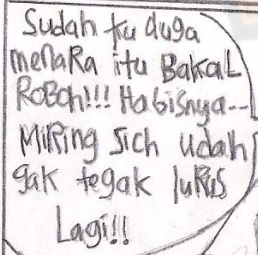 Sudah ku duga
menaRa itu BakaL
RoBoh!!! HaBisnya--
MiRing sich udah
gak tegak luRus
Lagi!!